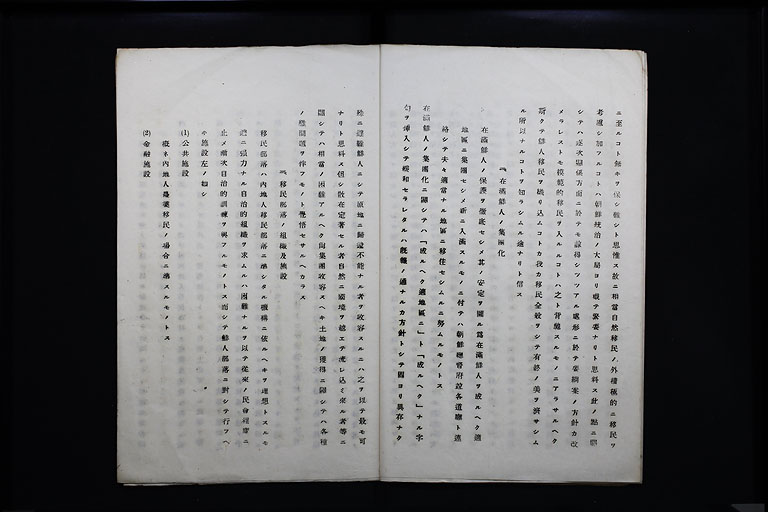 ニ至ルコト無キヲ保シ難シト思惟ス故ニ相當自然移民ノ外積極的ニ移民ヲ
考慮シ加フルコトハ朝鮮統治ノ大局ヨリ觀テ緊要ナリト思料ス此ノ點ニ關
シテハ逐次關係方面ニ於テモ諒得シツツアル處形ニ於テ要綱案ノ方針カ改
メラレストモ模範的移民ヲ入ルルコトハ之ト背馳スルモノニアラサルヘク
斯クテ鮮人移民ヲ吸リ込ムコトカ我カ移民全般ヲシテ有終ノ美ヲ濟サシム
ル所以ナルコトヲ知ラシムル途ナリト信ス
在滿鮮人ノ集團化
在滿鮮人ノ保護ヲ徹底セシメ其ノ安定ヲ圖ル爲在滿鮮人ヲ成ルヘク適
地區ニ集團セシメ新ニ入滿スルモノニ付テハ朝鮮總督府設各道廳ト連
絡シテ夫々適當ナル地區ニ移住セシムルニ努ムルモノトス
在滿鮮人ノ集團化ニ關シテハ「成ルヘク適地區ニ」ト「成ルヘク」ナル字
句ヲ挿入シテ緩和セラレタルハ既報ノ通ナルカ方針トシテ固ヨリ異存ナク
特ニ避難鮮人ニシテ原地ニ歸還不能ナル者ヲ收容スルニハ之ヲ以テ最モ可
ナリト思料ス但シ散在定著セル者自然ニ國境ヲ越エテ流レ込ミ來ル者等ニ
關シテハ相當ノ困難アルヘク尚集團收容スヘキ土地ノ獲得ニ關シテハ各種
ノ難問題ヲ伴フモノト覺悟セサルヘカラス
移民部落ノ組織及施設
移民部落ハ内地人移民部落ニ準シタル機構ニ依ルヘキヲ理想トスルモ
遽ニ強力ナル自治的組織ヲ求ムルハ困難ナルヲ以テ從來ノ民會程度ニ
止メ漸次自治的訓練ヲ與フルモノトス而シテ鮮人部落ニ對シテ行フヘ
キ施設左ノ如シ
(1) 公共施設
概ネ内地人農業移民ノ場合ニ準スルモノトス
(2) 金融施設